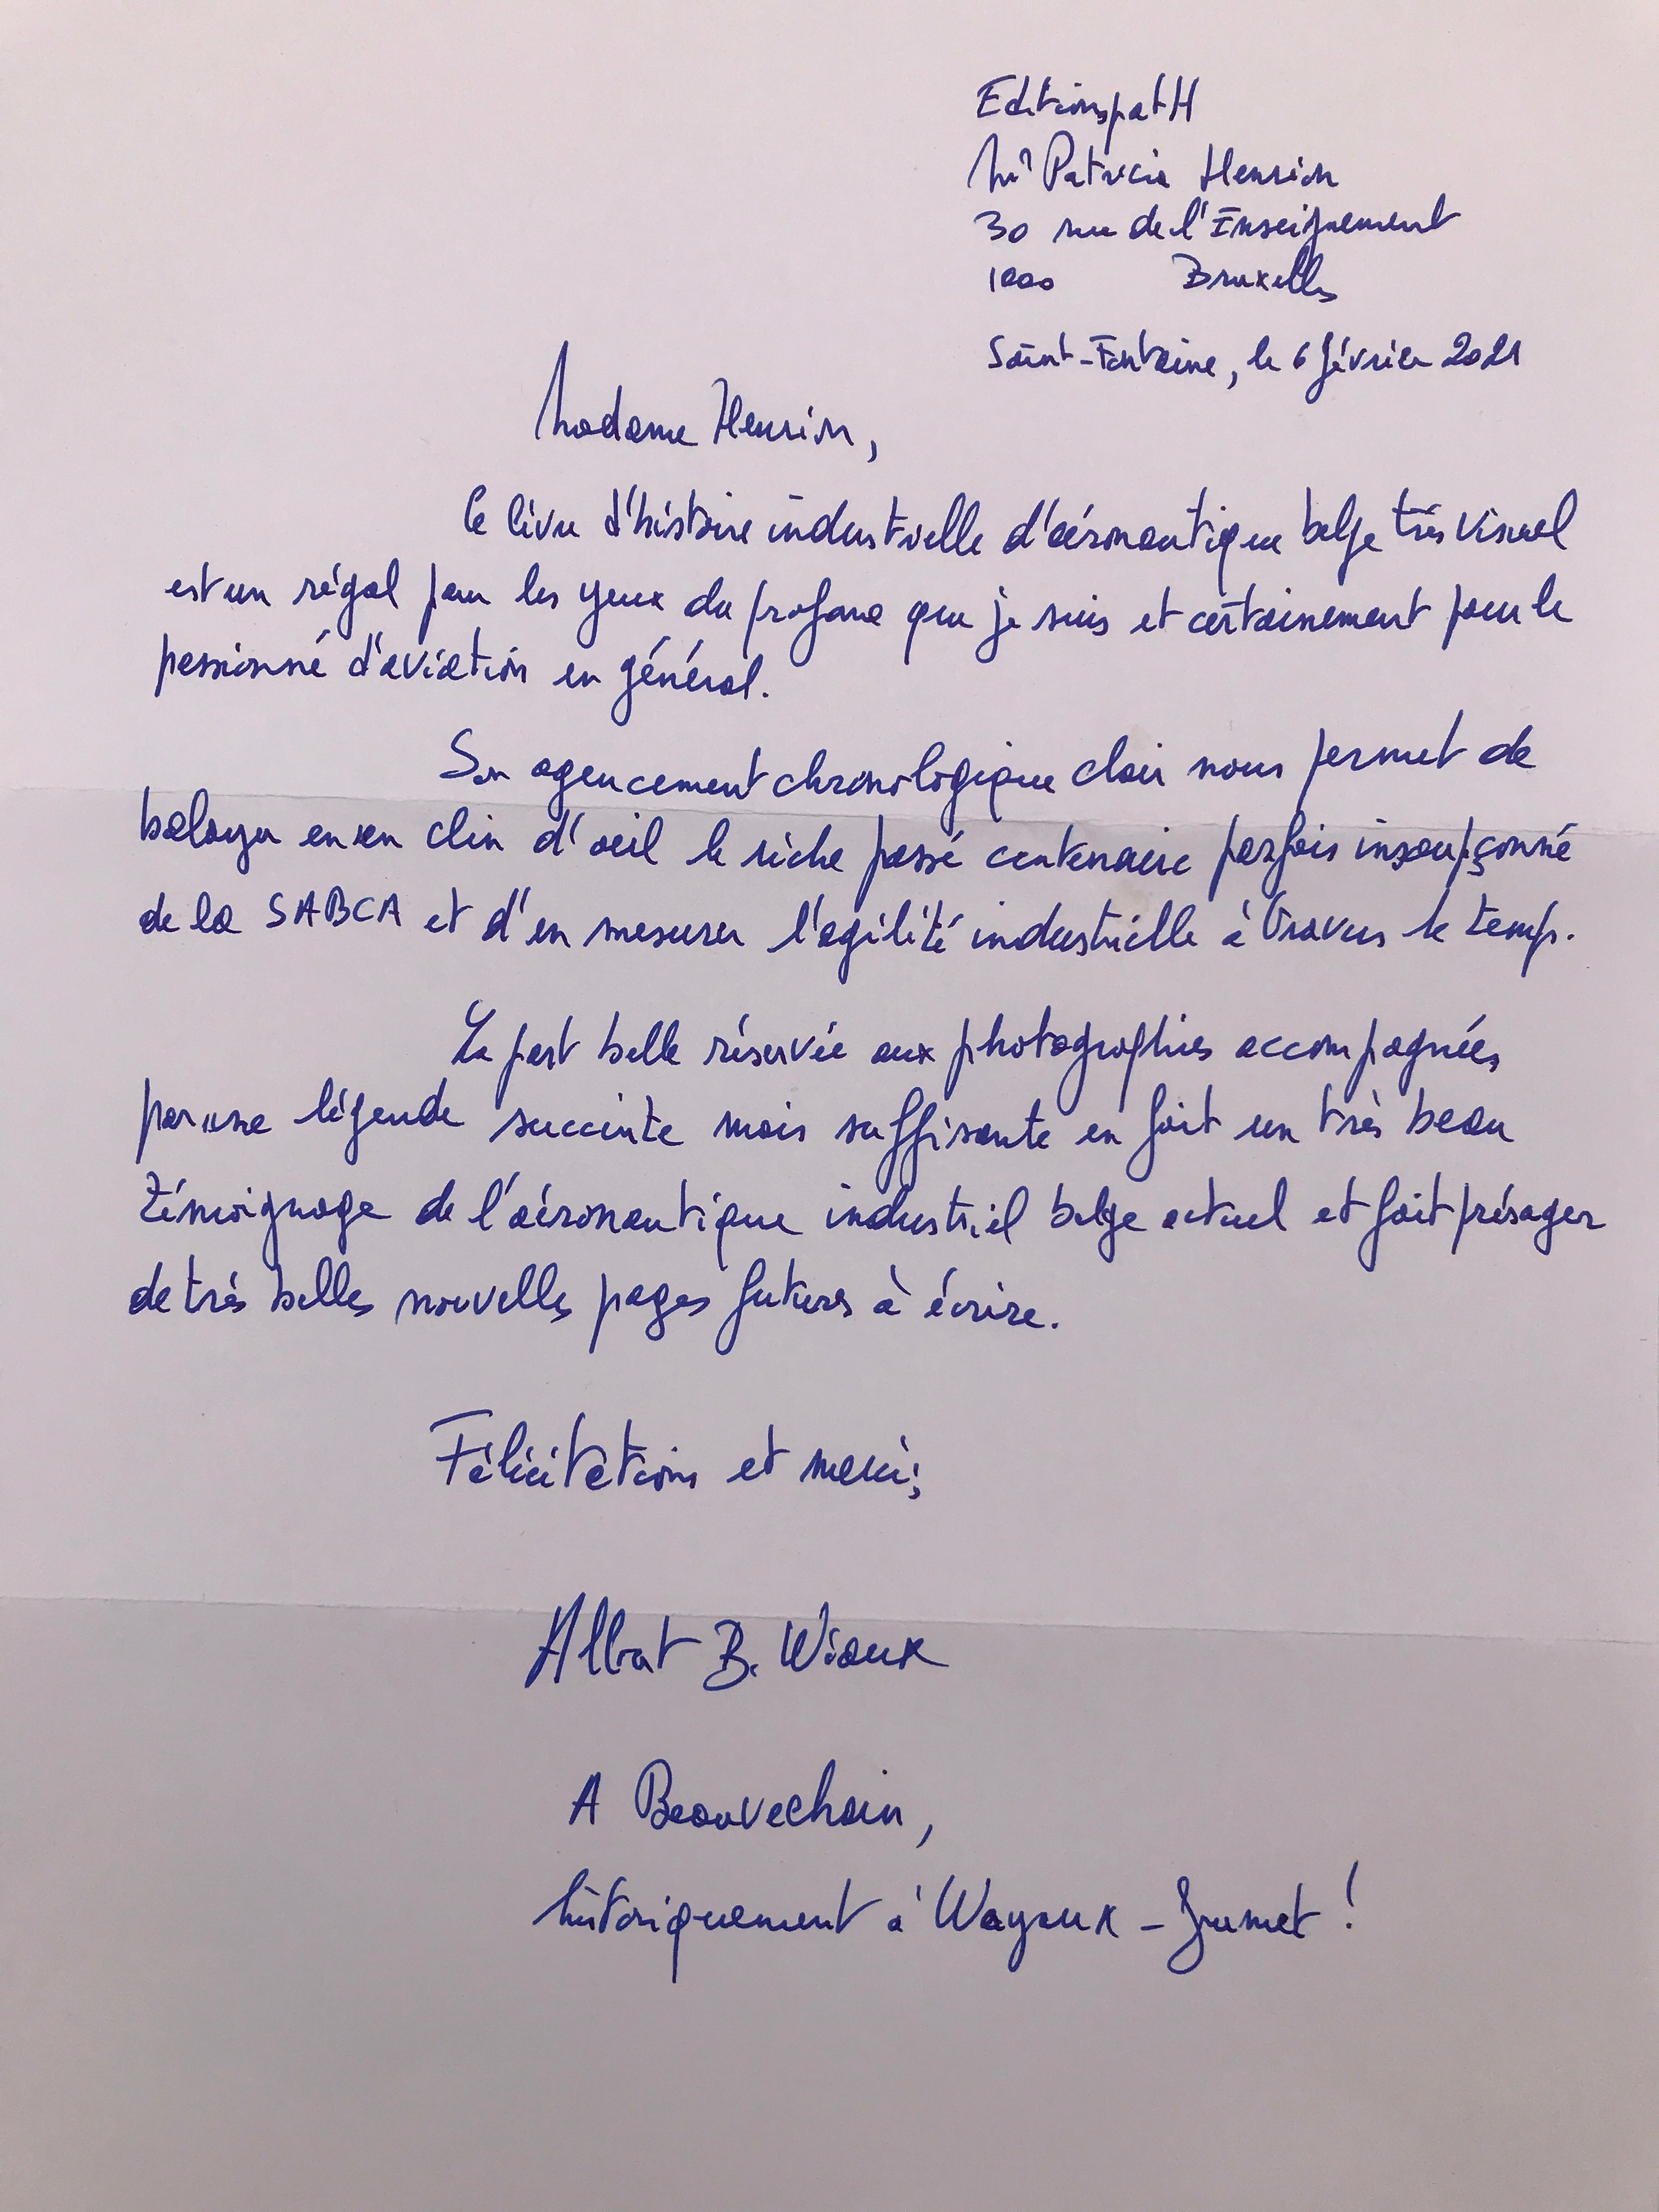 EditionspatH
Me Patricia Henrion
30 rue de l'Enseignement
1000 Bruxelles
Saint-Fontaine, le 6 février 2021
Madame Henrion,
Ce livre d'histoire industrielle d'aéronautique belge très visuel
est un régal pour les yeux du profane que je suis et certainement pour le
passionné d'aviation en général.
Son agencement chronologique clair nous permet de
balayer en un clin d'oeil le riche passé centenaire parfois insoupçonné
de la SABCA et d'en mesurer l'agilité industrielle à travers le temps.
La part belle réservée aux photographies accompagnées
par une légende succinte mais suffisante en fait un très beau
témoignage de l'aéronautique industriel belge actuel et fait présager
de très belles nouvelles pages futures à écrire.
Félicitations et merci;
Albert B. Wiaux
A Beauvechain,
historiquement à Wayaux - Jumet !